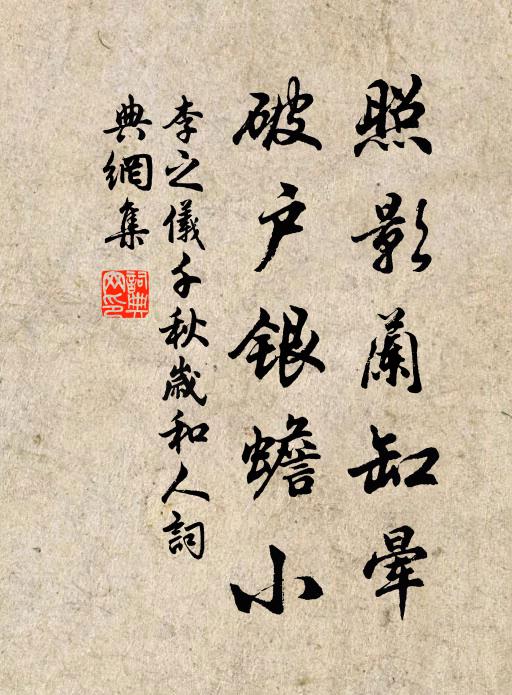 照影蘭缸暈
破戶銀蟾小
李之儀千秋歲和人詞
典網集
詞典網印